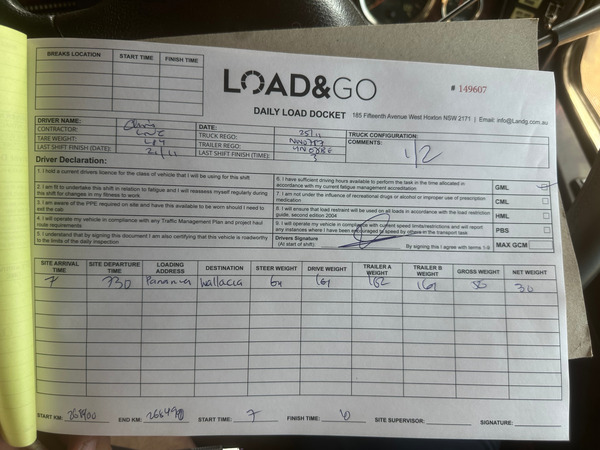 BREAKS LOCATION START TIME FINISH TIME
LOAD&GO
# 149607
DAILY LOAD DOCKET 185 Fifteenth Avenue West Hoxton NSW 2171 | Email: info@Landg.com.au
DRIVER NAME:
CONTRACTOR:
TARE WEIGHT:
LAST SHIFT FINISH (DATE): 21/11
DATE: 25/11
TRUCK REGO:
TRAILER REGO:
LAST SHIFT FINISH (TIME): 5
TRUCK CONFIGURATION:
COMMENTS:
1/2
Driver Declaration:
1. I hold a current drivers licence for the class of vehicle that I will be using for this shift
2. I am fit to undertake this shift in relation to fatigue and I will reassess myself regularly during this shift for changes in my fitness to work
3. I am aware of the PPE required on site and have this available to be worn should I need to exit the cab
4. I will operate my vehicle in compliance with any Traffic Management Plan and project haul route requirements
5. I understand that by signing this document I am also certifying that this vehicle is roadworthy to the limits of the daily inspection
6. I have sufficient driving hours available to perform the task in the time allocated in accordance with my current fatigue management accreditation
7. I am not under the influence of recreational drugs or alcohol or improper use of prescription medication
8. I will ensure that load restraint will be used on all loads in accordance with the load restriction guide, second edition 2004
9. I will operate my vehicle in compliance with current speed limits/restrictions and will report any instances where I have been encouraged to speed by others in the transport task
Drivers Signature
(At start of shift):
By signing this I agree with terms 1-9
GML
CML
HML
PBS
MAX GCM
SITE ARRIVAL TIME SITE DEPARTURE TIME LOADING ADDRESS DESTINATION STEER WEIGHT DRIVE WEIGHT TRAILER A WEIGHT TRAILER B WEIGHT GROSS WEIGHT NET WEIGHT
7 730 Wallacia 64 161 162 169 30
START KM: 268400 END KM: START TIME: 7 FINISH TIME: SITE SUPERVISOR: SIGNATURE: